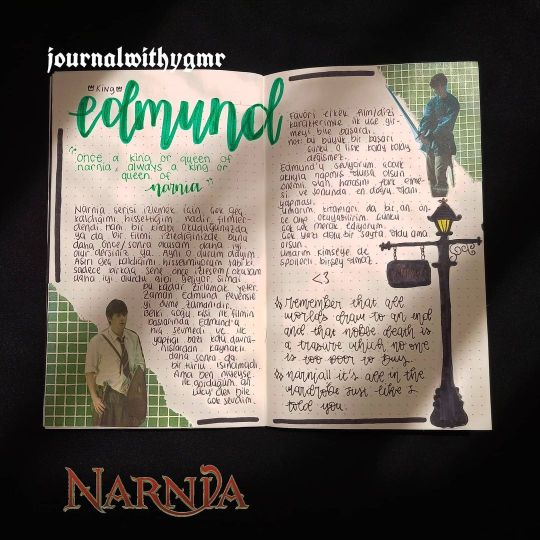 journalwithygmr
♕KING♕
edmund
"Once a king or queen of
narnia, always a king or
queen of
narnia"
Narnia serisi izlemek için çok geç
kaldığımı hissettiğim nadir filmler-
dendi. Hani bir kitabı okuduğunuzda
ya da bir filmi izlediğinizde bunu
daha önce/sonra okusam daha iyi
olur dersiniz ya. Aynı o durumdayım.
Aşırı geç kaldığımı hissetmiyorum tabi ki
sadece birkaç sene önce izlesem/okusam
daha iyi olurdu gibi geliyor. Şimdi
bu kadar zırlamak yeter.
Zaman Edmund Pevensie
yi övme zamanıdır.
Belki çoğu kişi ilk filmin
başlarında Edmund'a
hiç sevmedi ve ilk
yaptığı bazı kötü davra-
nışlardan kaynaklı
daha sonra da
bir türlü ısınamadı.
Ama ben nedense
ilk gördüğüm an
Lucy'den bile
çok sevdim.
Favori erkek film/dizi
karakterimle ilk üçe gir-
meyi bile başardı.
not: bu büyük bir başarı
çünkü o liste kolay kolay
değişmez.
Edmund'u seviyorum çocuk
aklıyla yapmış olursa olsun
önemli olan hatasını fark etme-
si ve sonunda en doğru olanı
yapması.
Umarım kitapları da bir an ön-
ce alıp okuyabilirim. Çünkü
çok çok merak ediyorum.
Çok yazı dolu bir sayfa oldu ama
olsun.
Umarım kimseye de
spoilerlı birşey olmaz.
<3
remember that all
worlds draw to an end
and that noble death is
a treasure which no one
is too poor to buy.
narnia!! it's all in the
wardrobe just like I
told you.
NARNIA